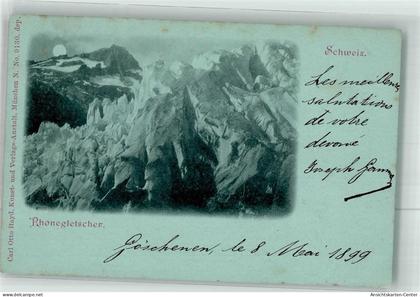 Schweiz.
Les meilleurs
salutations
de votre
dévoué
Joseph
Rhonegletscher.
Göschenen, le 8 Mai 1899
Carl Otto Hayd, Kunst- und Verlags-Anstalt, München N. No. 9130, dep.
www.ansichtskartenversand.com
Ansichtskarten-Center